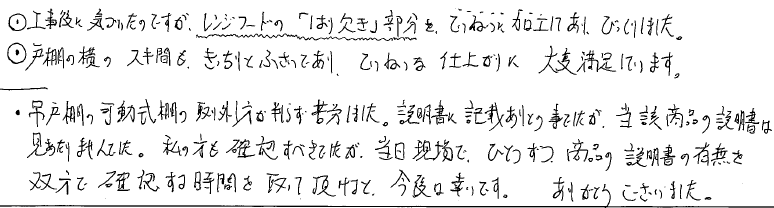 ⊙工事後に気づいたのですが、レンジフードの「はり欠き」部分を、ていねいに加工してあり、びっくりしました。
⊙戸棚の横のスキ間も、きっちりとふさいであり、ていねいな仕上がりに大変満足しています。
・吊戸棚の可動式棚の取り外し方が判らず苦労しました。説明書に記載ありとの事でしたが、当該商品の説明書は
見あたりませんでした。私の方も確認すべきでしたが、当日現場で、ひとつずつ商品の説明書の有無を
双方で確認する時間を取って頂けると、今後は幸いです。 ありがとうございました。